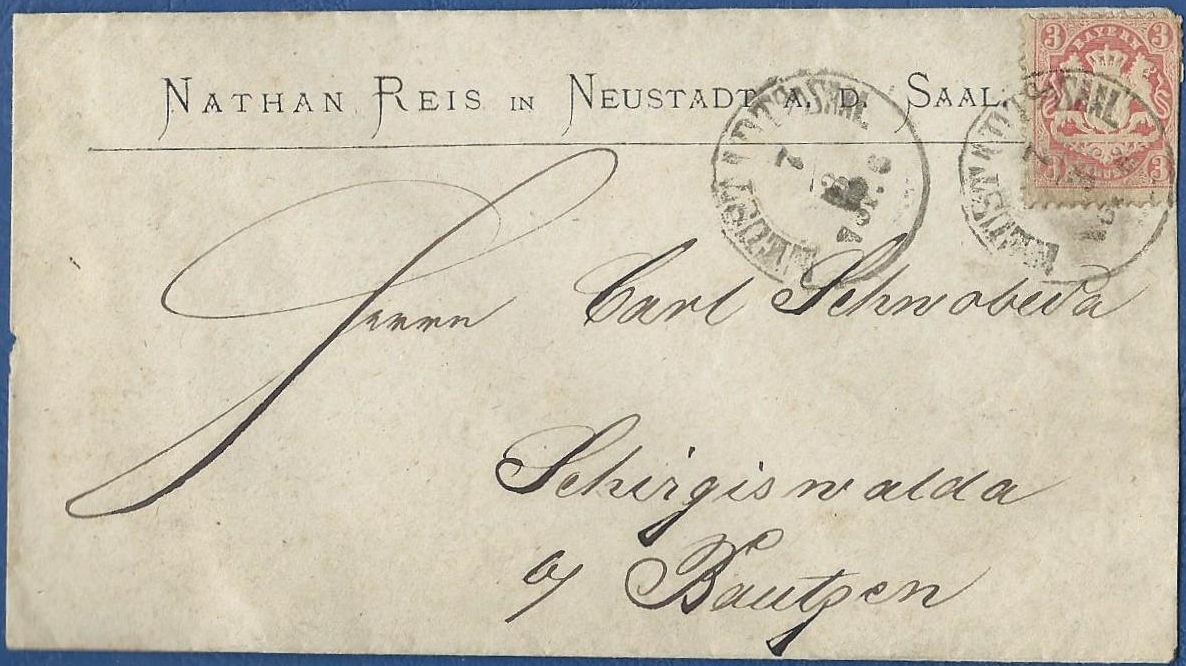 NATHAN REIS IN NEUSTADT A. D. SAAL.
3 BAYERN 3
3 3
NEUSTADT SAAL
7
Herrn Carl Schwobeda
Schirgiswalda
a/ Bautzen